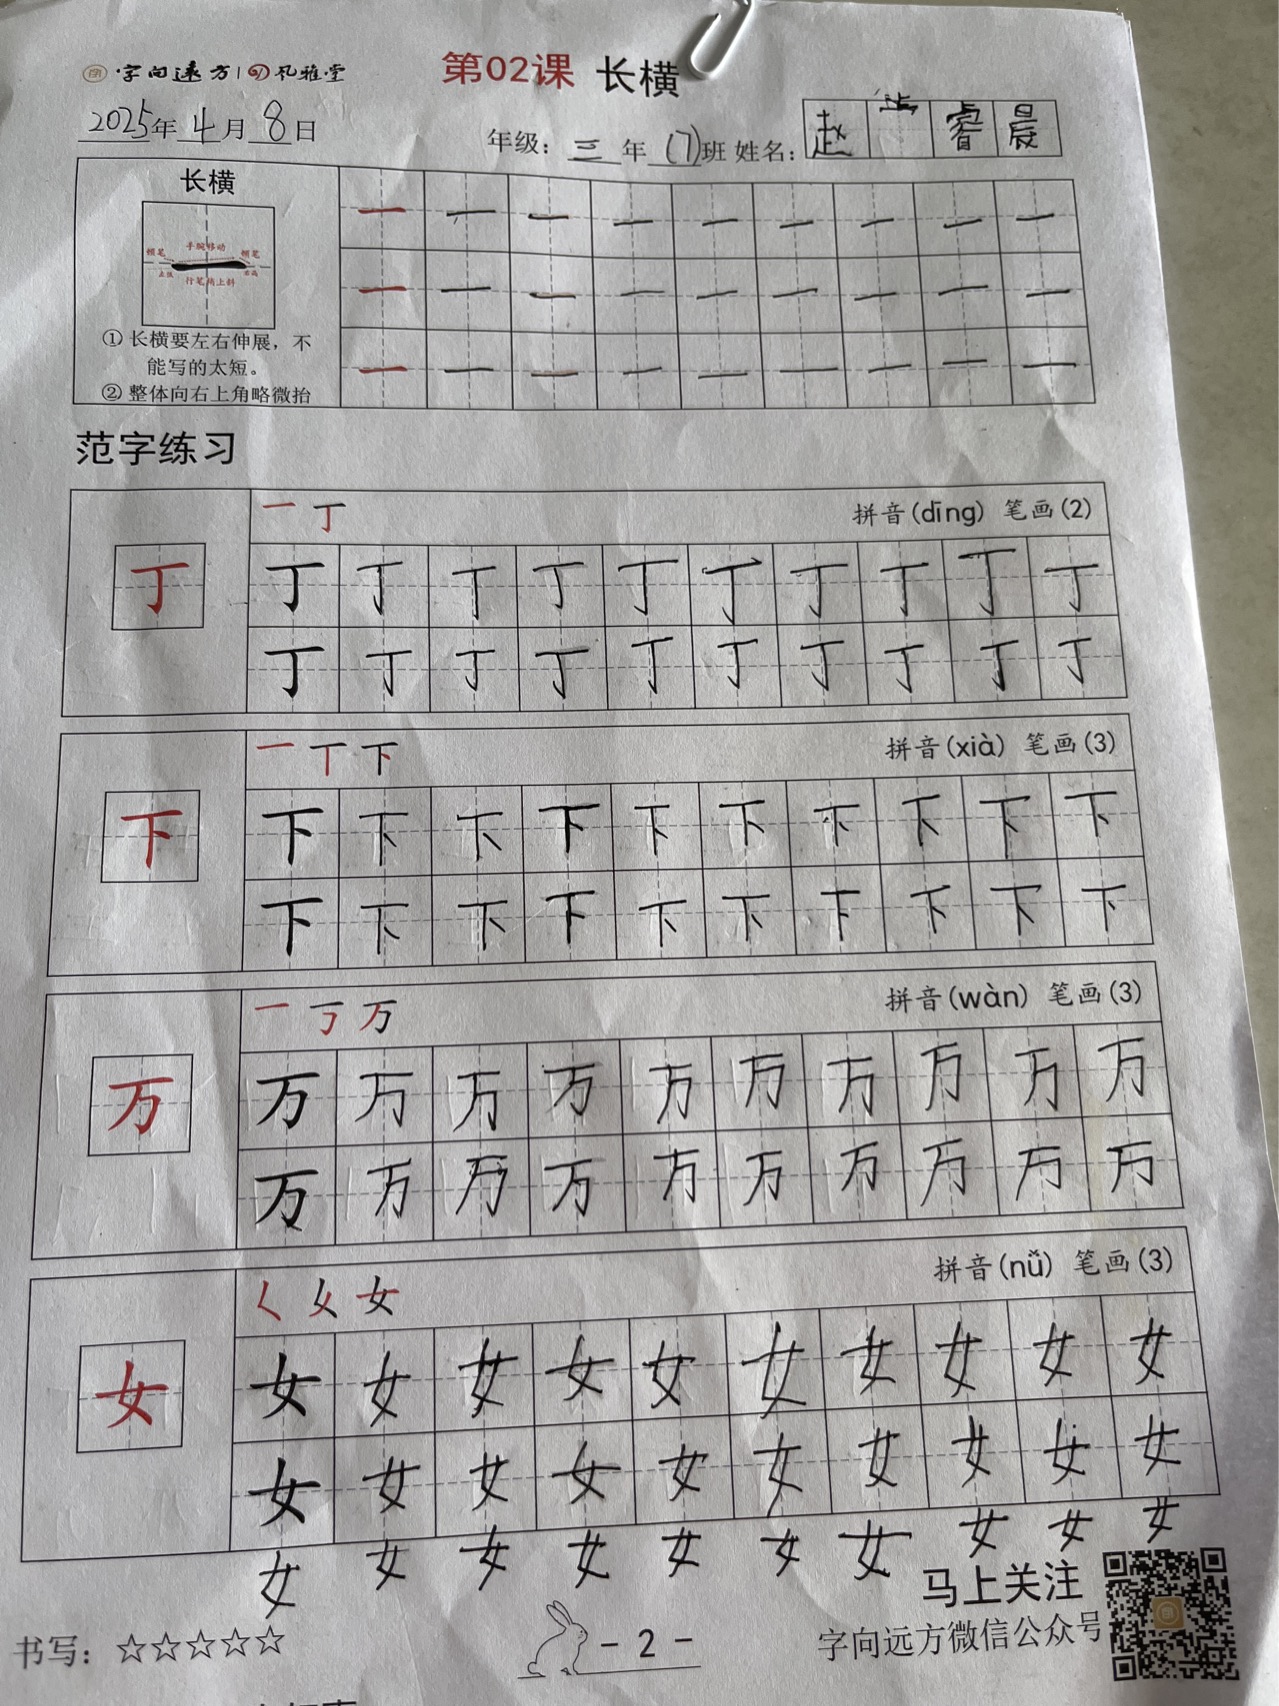 字向远方 | 孔雅堂
第02课 长横
2025年 4月 8日
年级：三年(7)班 姓名：赵 睿晨
长横
顿笔 手腕移动 顿笔
左低 行笔稍上斜 右高
① 长横要左右伸展，不
能写的太短。
② 整体向右上角略微抬
一 一 一 一 一 一 一 一 一
一 一 一 一 一 一 一 一 一
一 一 一 一 一 一 一 一 一
范字练习
一 丁 拼音(dīng) 笔画(2)
丁
丁 丁 丁 丁 丁 丁 丁 丁 丁 丁
丁 丁 丁 丁 丁 丁 丁 丁 丁 丁
一 丅 下 拼音(xià) 笔画(3)
下
下 下 下 下 下 下 下 下 下 下
下 下 下 下 下 下 下 下 下 下
一 丂 万 拼音(wàn) 笔画(3)
万
万 万 万 万 万 万 万 万 万 万
万 万 万 万 万 万 万 万 万 万
𡿨 乆 女 拼音(nǚ) 笔画(3)
女
女 女 女 女 女 女 女 女 女 女
女 女 女 女 女 女 女 女 女 女
女 女 女 女 女 女 女 女 女 女
马上关注
书写：☆☆☆☆☆
- 2 -
字向远方微信公众号